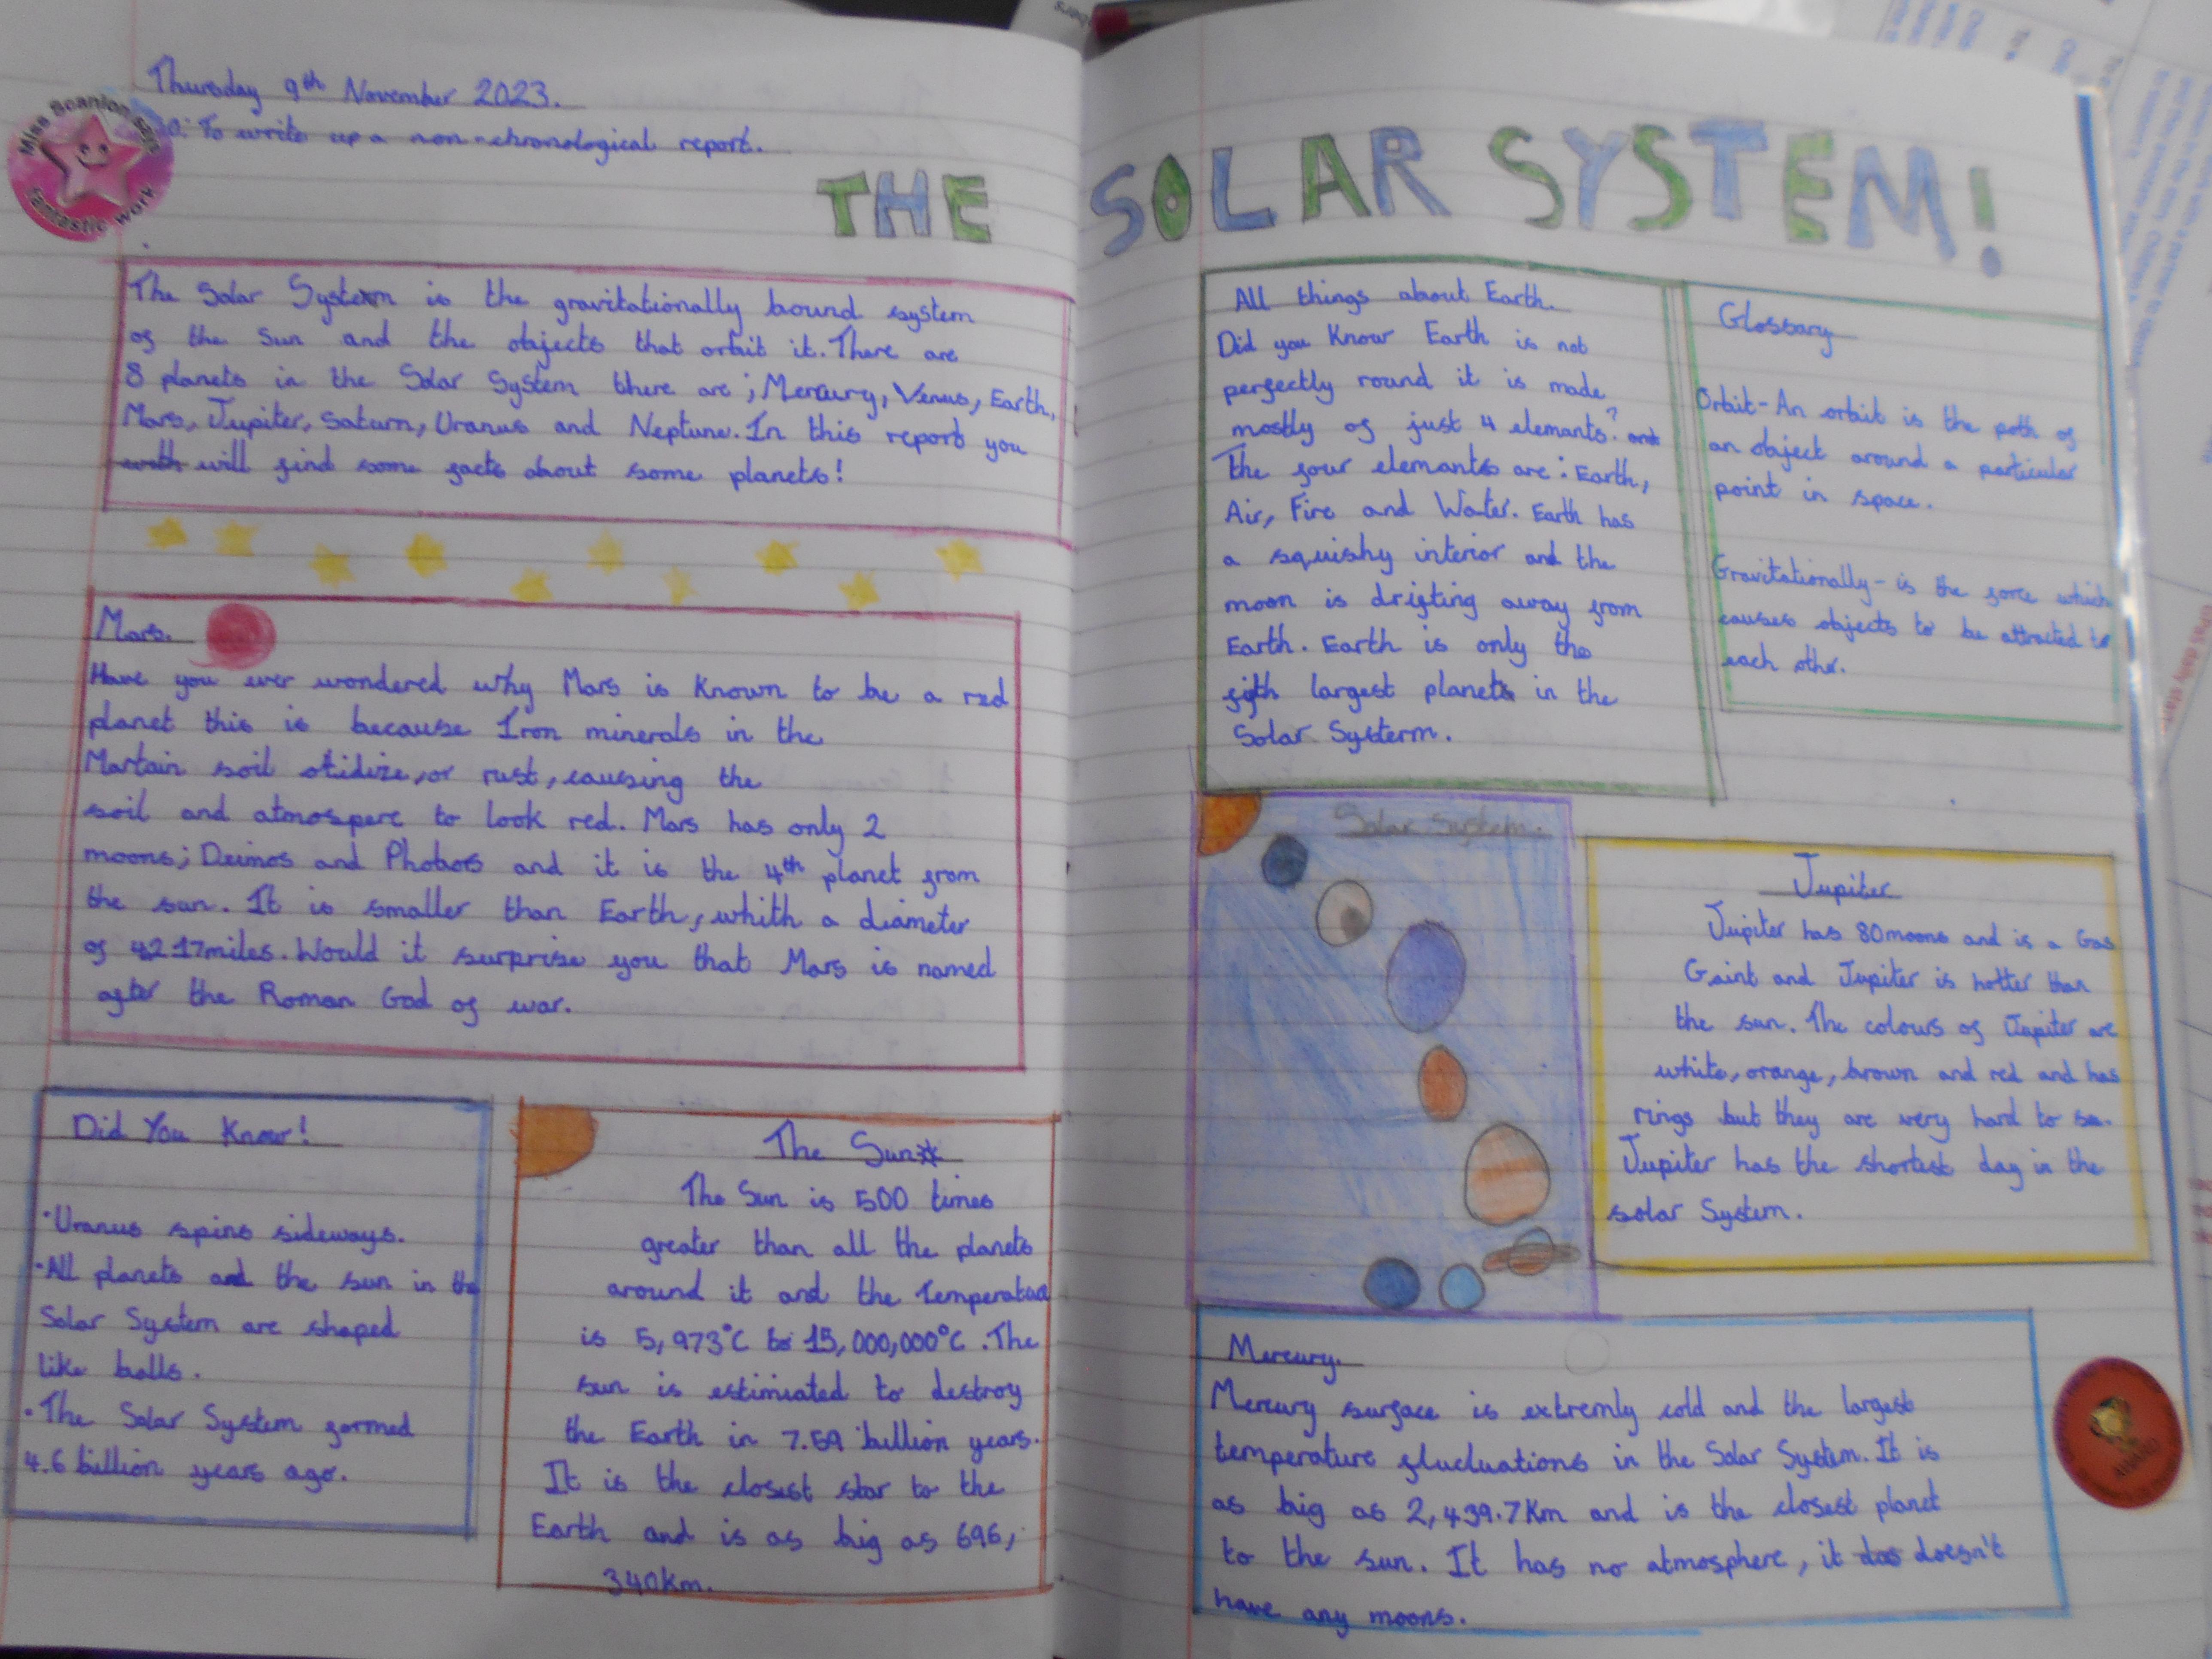 Thursday 9th November 2023.
To write up a non-chronological report.
Miss Scanlon says
fantastic work
THE SOLAR SYSTEM!
The Solar System is the gravitationally bound system
of the Sun and the objects that orbit it. There are
8 planets in the Solar System there are; Mercury, Venus, Earth,
Mars, Jupiter, Saturn, Uranus and Neptune. In this report you
will find some facts about some planets!
Mars.
Have you ever wondered why Mars is Known to be a red
planet this is because Iron minerals in the
Martain soil otidize, or rust, causing the
soil and atmospere to look red. Mars has only 2
moons; Deimos and Phobos and it is the 4th planet from
the sun. It is smaller than Earth, whith a diameter
of 4217miles. Would it surprise you that Mars is named
after the Roman God of war.
Did You Know!
• Uranus spins sideways.
• All planets and the sun in the
Solar System are shaped
like balls.
• The Solar System formed
4.6 billion years ago.
The Sun
The Sun is 500 times
greater than all the planets
around it and the Temperatue
is 5,973°C to 15,000,000°C. The
sun is estimiated to destroy
the Earth in 7.59 billion years.
It is the closest star to the
Earth and is as big as 696,
340km.
All things about Earth.
Did you Know Earth is not
perfectly round it is made
mostly of just 4 elemants?
The four elemants are: Earth,
Air, Fire and Water. Earth has
a squishy interior and the
moon is drifting away from
Earth. Earth is only the
fifth largest planets in the
Solar Systerm.
Glossary
Orbit-An orbit is the path of
an object around a particular
point in space.
Gravitationally- is the force which
causes objects to be attracted to
each other.
Solar System.
Jupiter
Jupiter has 80moons and is a Gas
Gaint and Jupiter is hotter than
the sun. The colours of Jupiter are
white, orange, brown and red and has
rings but they are very hard to see.
Jupiter has the shortest day in the
solar System.
Mercury.
Mercury surface is extremly cold and the largest
temperature flucluations in the Solar System. It is
as big as 2,439.7Km and is the closest planet
to the sun. It has no atmosphere, it doesn't
have any moons.